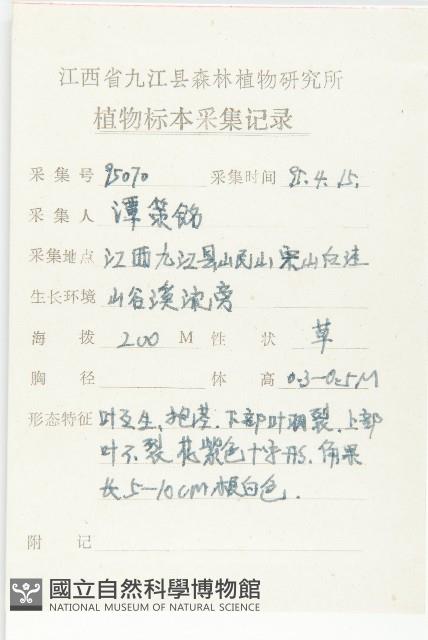 江西省九江县森林植物研究所
植物标本采集记录
采集号 95070 采集时间 95.4.15.
采集人 潭策铭
采集地点 江西九江县岷山 山
生长环境 山谷溪流旁
海拨 200 M 性状 草
胸径 体高 0.3—0.5M
形态特征 叶互生、抱茎.下部叶羽裂.上部
叶不裂.花紫色十字形.角果
长5—10CM 根白色.
附记
國立自然科學博物館
NATIONAL MUSEUM OF NATURAL SCIENCE